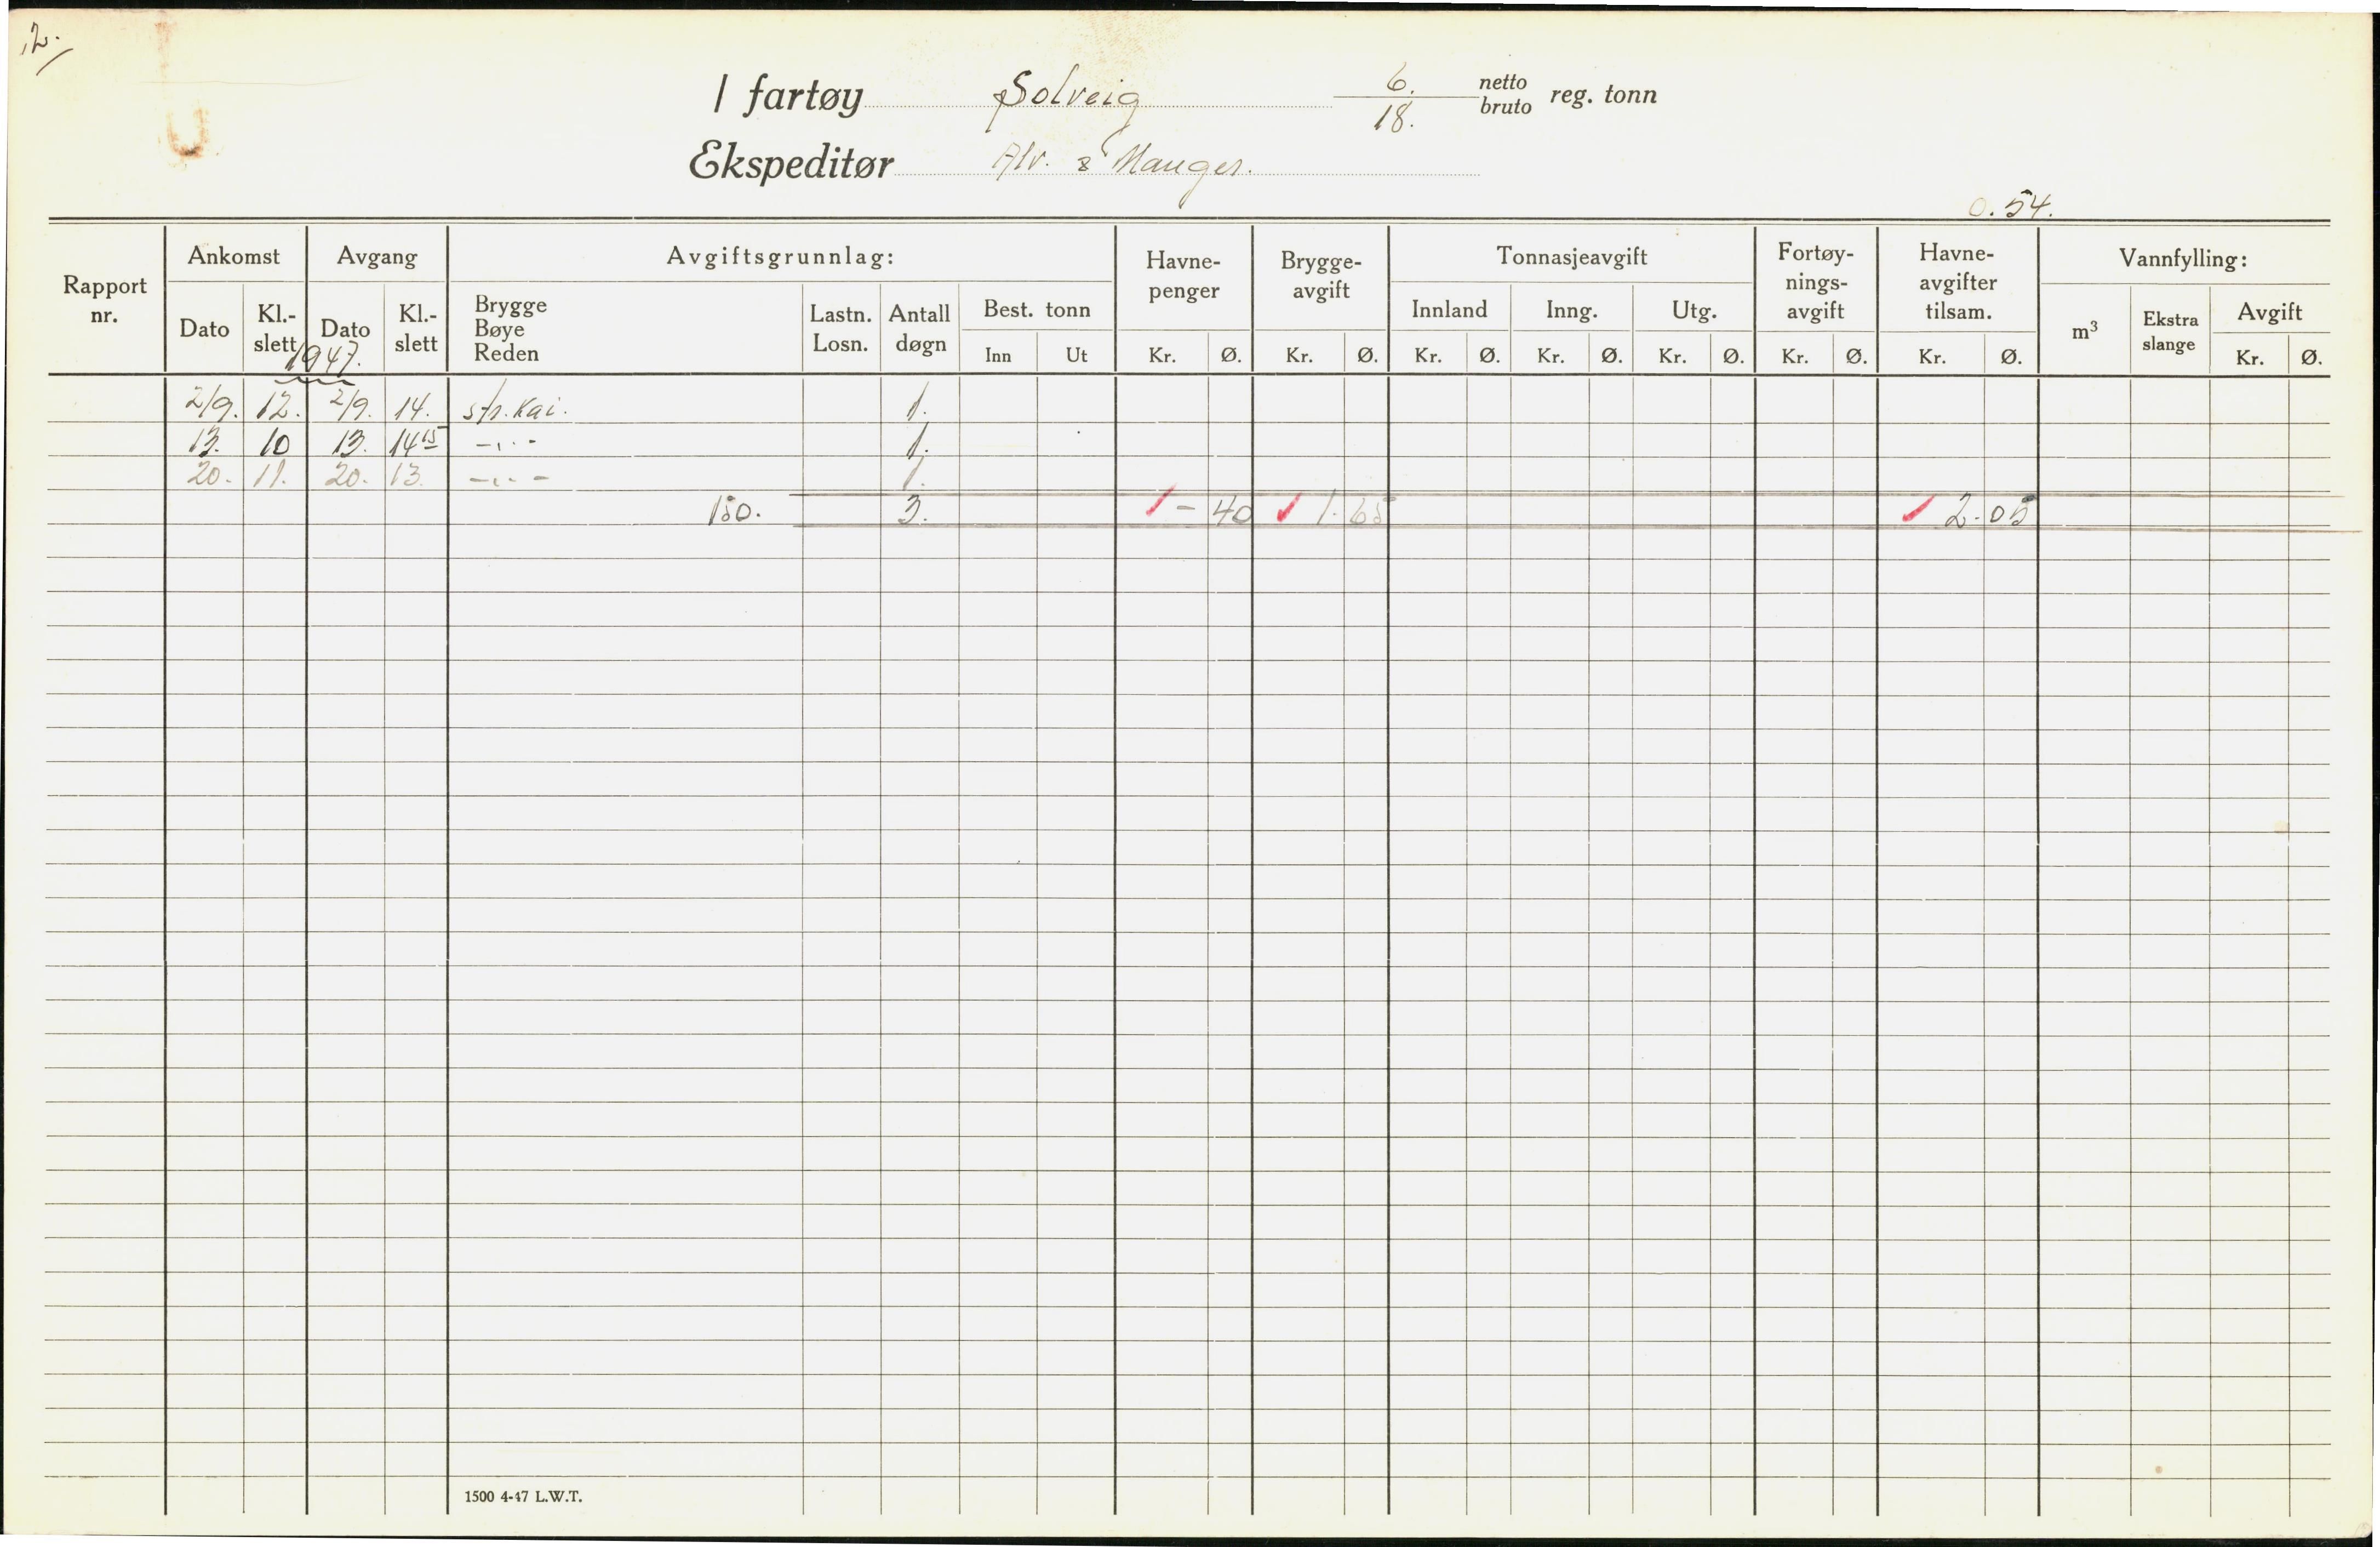 12.
I fartøy Solveig 6. netto
18. bruto reg. tonn
Ekspeditør Alv. & Manger.
0.54.
Rapport nr. Ankomst Avgang Avgiftsgrunnlag: Havne-penger Brygge-avgift Tonnasjeavgift Fortøy-nings-avgift Havne-avgifter tilsam. Vannfylling:
Dato Kl.-slett Dato Kl.-slett Brygge Bøye Reden Lastn. Losn. Antall døgn Best. tonn Innland Inng. Utg. m³ Ekstra slange Avgift
Inn Ut Kr. Ø. Kr. Ø. Kr. Ø. Kr. Ø. Kr. Ø. Kr. Ø. Kr. Ø. Kr. Ø.
1947.
2/9. 12. 2/9. 14. str. Kai. 1.
13. 10 13. 14 15 -„- 1.
20. 11. 20. 13. -„- 1.
150. 3. - 40 1. 65 2. 05
1500 4-47 L.W.T.